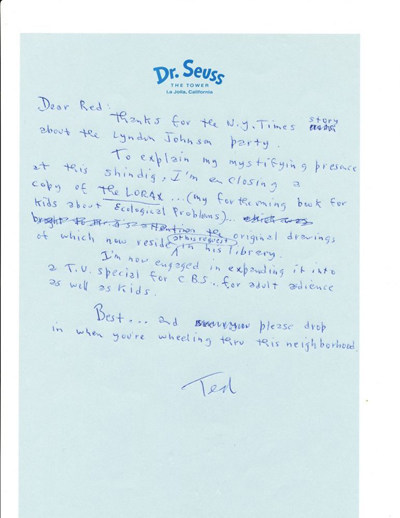 Dr. Seuss
THE TOWER
La Jolla, California
Dear Red:
Thanks for the N.Y. Times story
about the Lyndon Johnson party.
To explain my mystifying presence
at this shindig, I'm enclosing a
copy of the LORAX... (my forthcoming book for
kids about Ecological Problems)..
brought to attention the original drawings
of which now reside at his request in his library.
I'm now engaged in expanding it into
a T.V. special for CBS.. for adult audience
as well as kids.
Best... and please drop
in when you're wheeling thru this neighborhood.
Ted